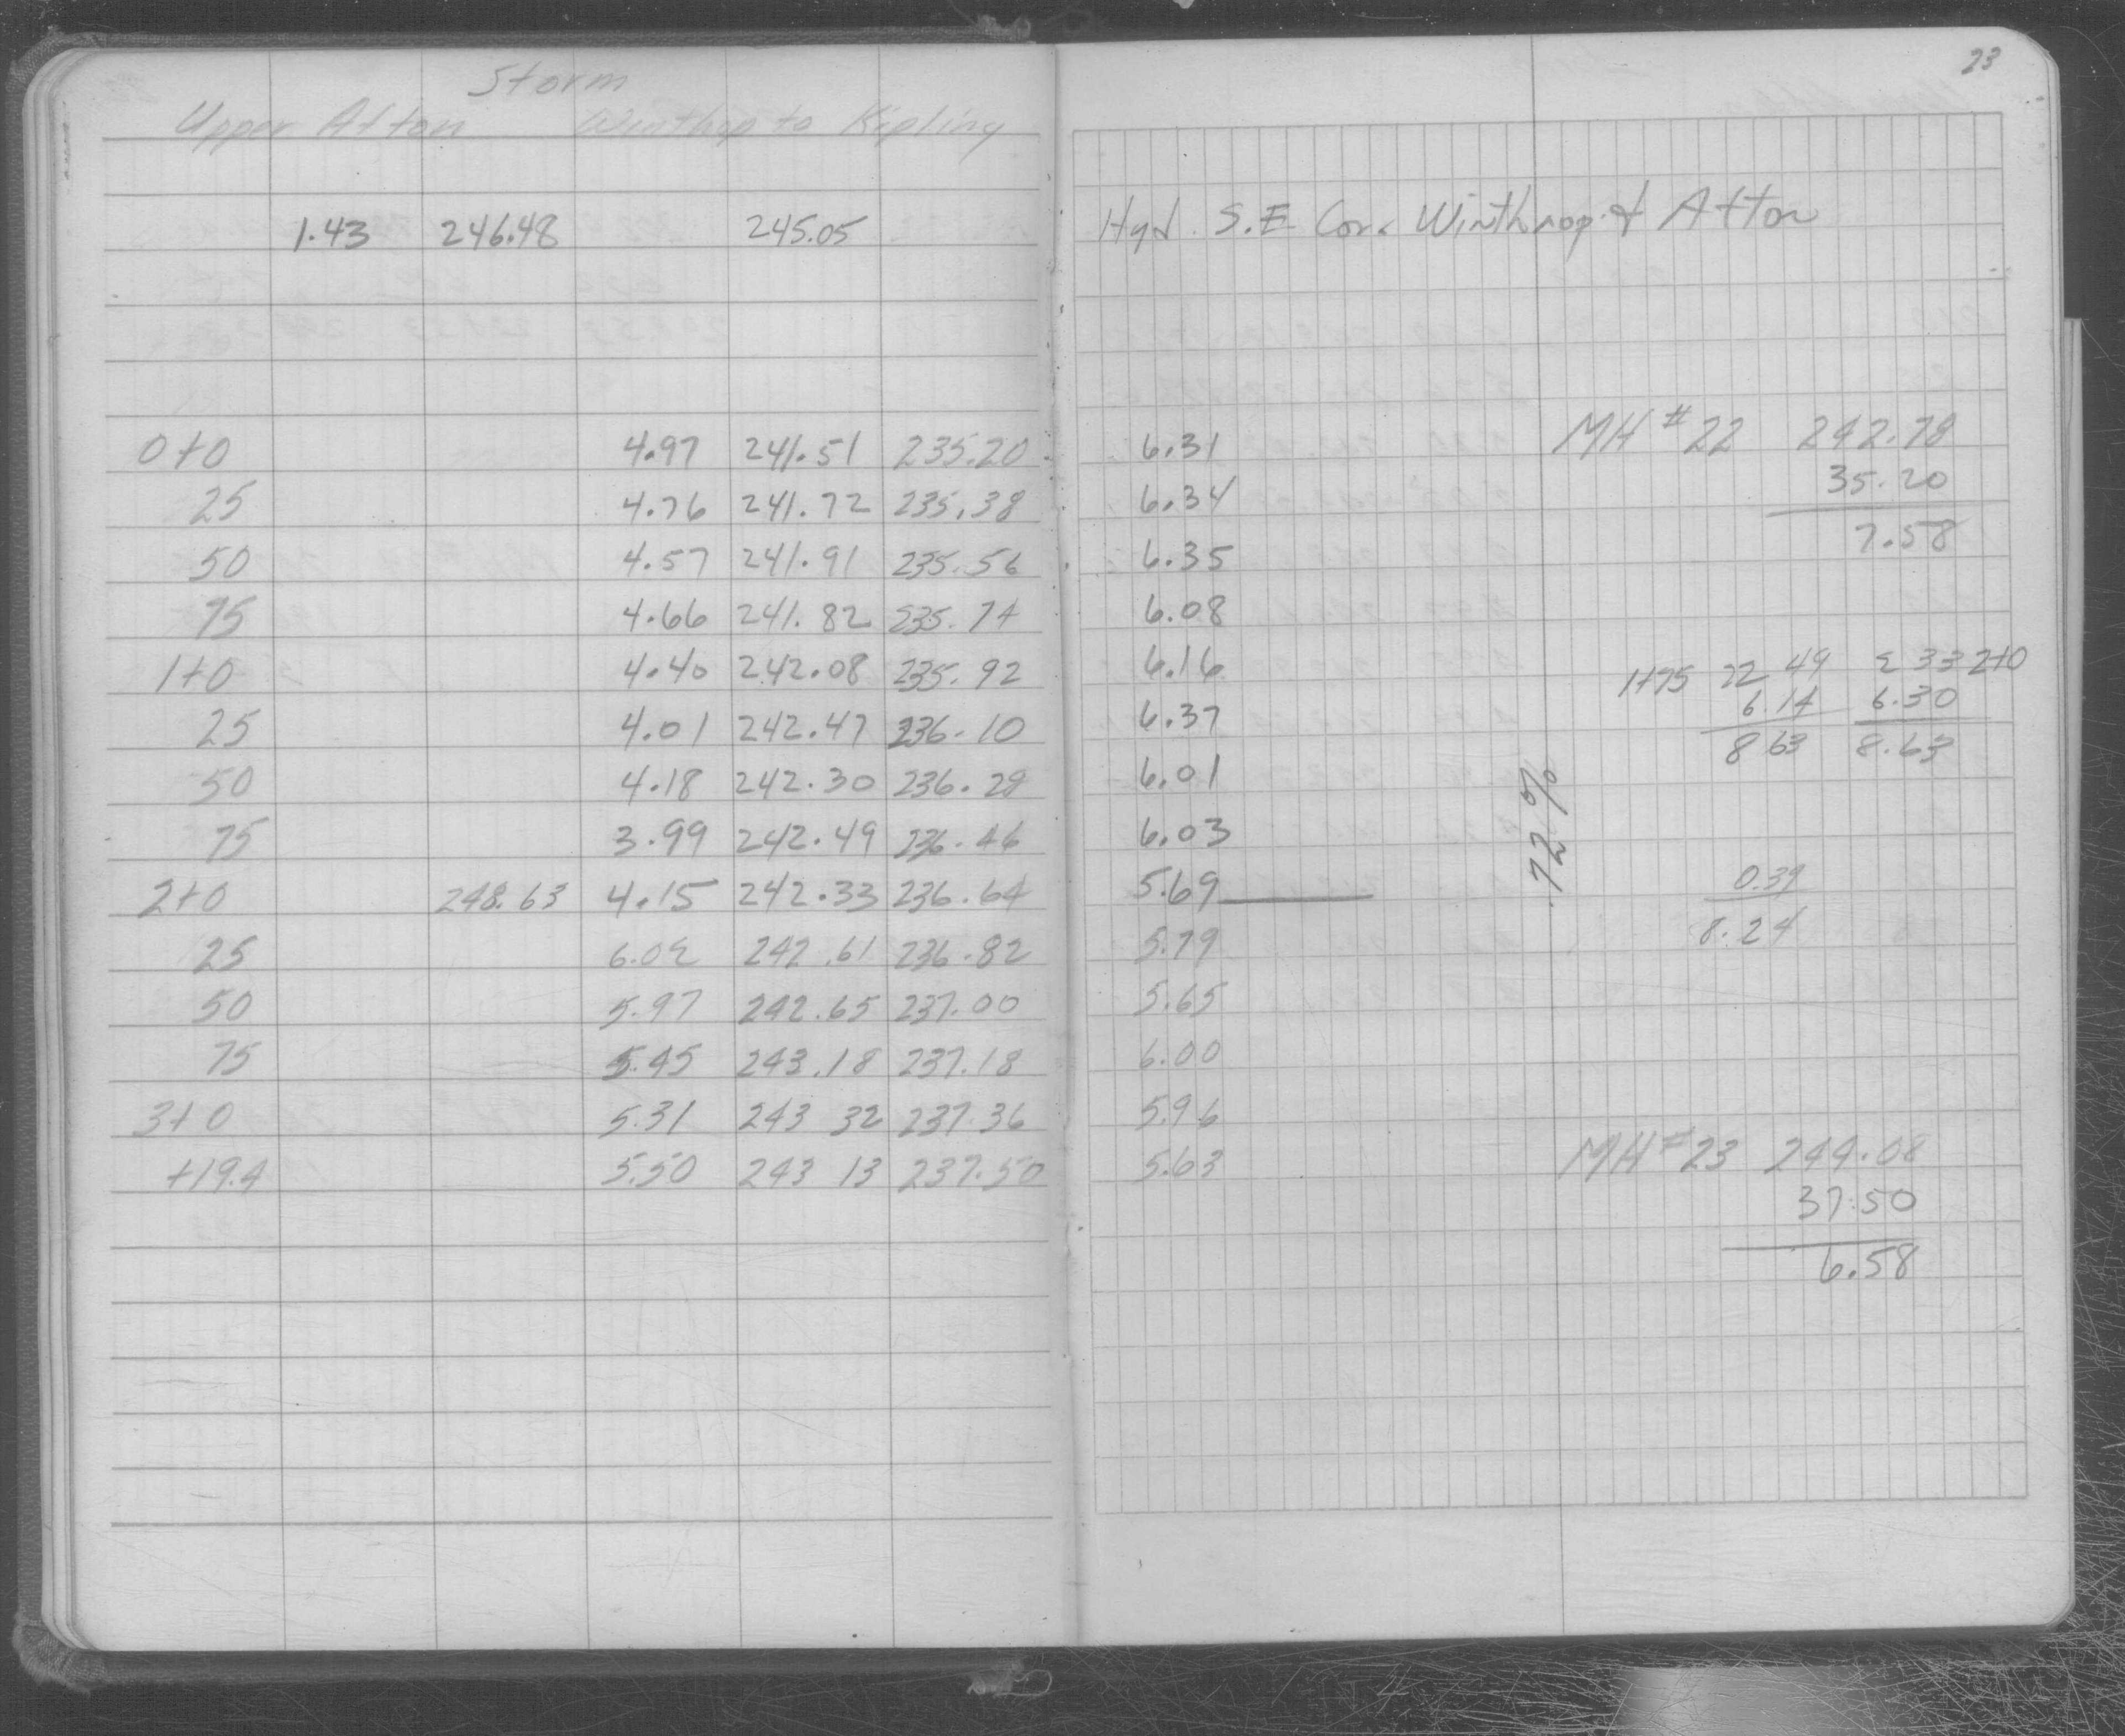 23
Storm
Upper Afton Winthrop to Kipling
1.43 246.48 245.05 Hyd. S.E. Cor. Winthrop & Afton
0+0 4.97 241.51 235.20 6.31 MH #22 242.78
35.20
25 4.76 241.72 235.38 6.34
7.58
50 4.57 241.91 235.56 6.35
75 4.66 241.82 235.74 6.08
1+0 4.40 242.08 235.92 6.16 1+75 22 49 2 33 2+0
6.14 6.30
25 4.01 242.47 236.10 6.37
8 63 8.63
50 4.18 242.30 236.28 6.01
.72%
75 3.99 242.49 236.46 6.03
0.39
2+0 248.63 4.15 242.33 236.64 5.69
8.24
25 6.02 242.61 236.82 5.79
50 5.97 242.65 237.00 5.65
75 5.45 243.18 237.18 6.00
3+0 5.31 243 32 237.36 5.96
+19.4 5.50 243 13 237.50 5.63 MH #23 244.08
37.50
6.58